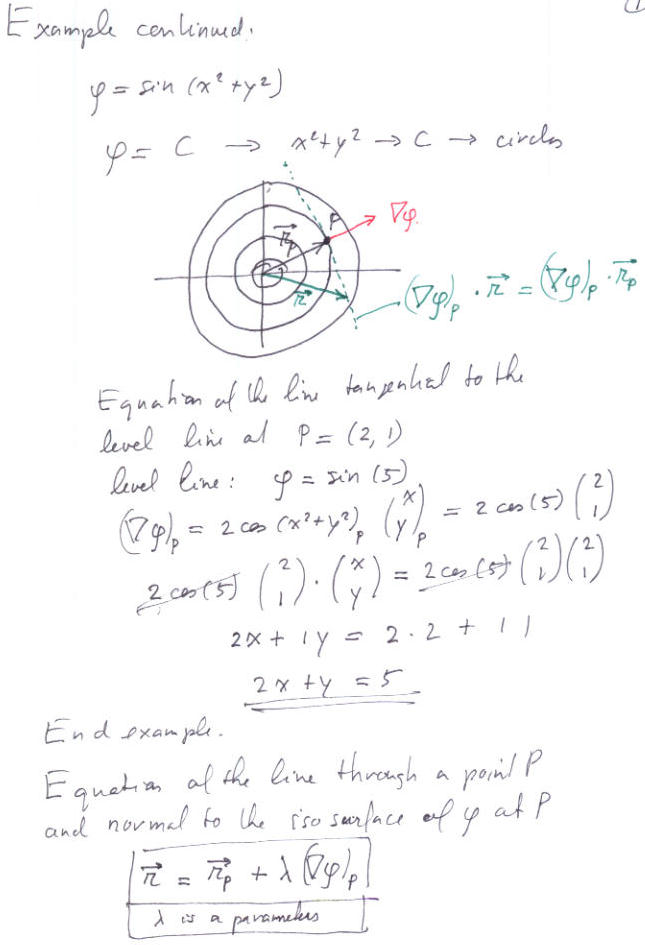 Example continued.
φ = sin (x² + y²)
φ = C → x² + y² → C → circles
P
∇φ.
r⃗_p
r⃗
(∇φ)_p · r⃗ = (∇φ)_p · r⃗_p
Equation of the line tangential to the
level line at P = (2, 1)
level line: φ = sin (5)
(∇φ)_p = 2 cos (x² + y²)_p (x y)_p = 2 cos (5) (2 1)
2 cos (5) (2 1) · (x y) = 2 cos (5) (2 1) (2 1)
2x + 1y = 2 · 2 + 1 1
2x + y = 5
End example.
Equation of the line through a point P
and normal to the iso surface of φ at P
r⃗ = r⃗_p + λ (∇φ)_p
λ is a parameters